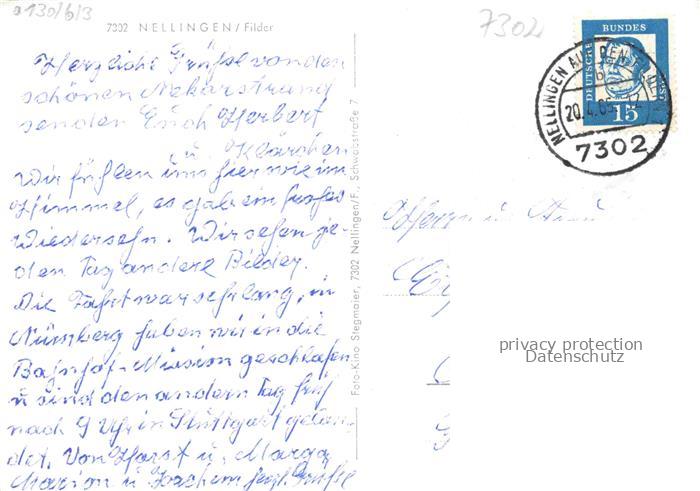 a 130/b/3
7302
7302 NELLINGEN/Filder
DEUTSCHE BUNDESPOST
15
NELLINGEN AUF DEN FILDERN
20.4.65
7302
Herzliche Grüße von den
schönen Nekarstrung
senden Euch Herbert
u. Klärchen
Wir fühlen uns hier wie im
Himmel, es gab ein frohes
Wiedersehn. Wir sehen je-
den Tag andere Bilder.
Die Fahrt war sehr lang, in
Nürnberg haben wir in die
Bahnhof-Mission geschlafen
u sind den andern Tag früh
nach 9 Uhr in Stuttgart gelan-
det. Von Horst u. Marga
Marion u Joachim herzl. Grüße
Foto-Kino Stegmaier, 7302 Nellingen/F., Schwabstraße 7
Herrn u
privacy protection
Datenschutz